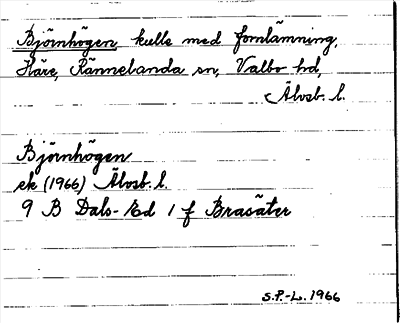 Björnhögen, kulle med fornlämning,
Häre, Rännelanda sn, Valbo hd,
Älvsb. l.
Björnhögen
ek (1966) Älvsb. l.
9 B Dals-Ed 1 f Brasäter
S.P.-L. 1966